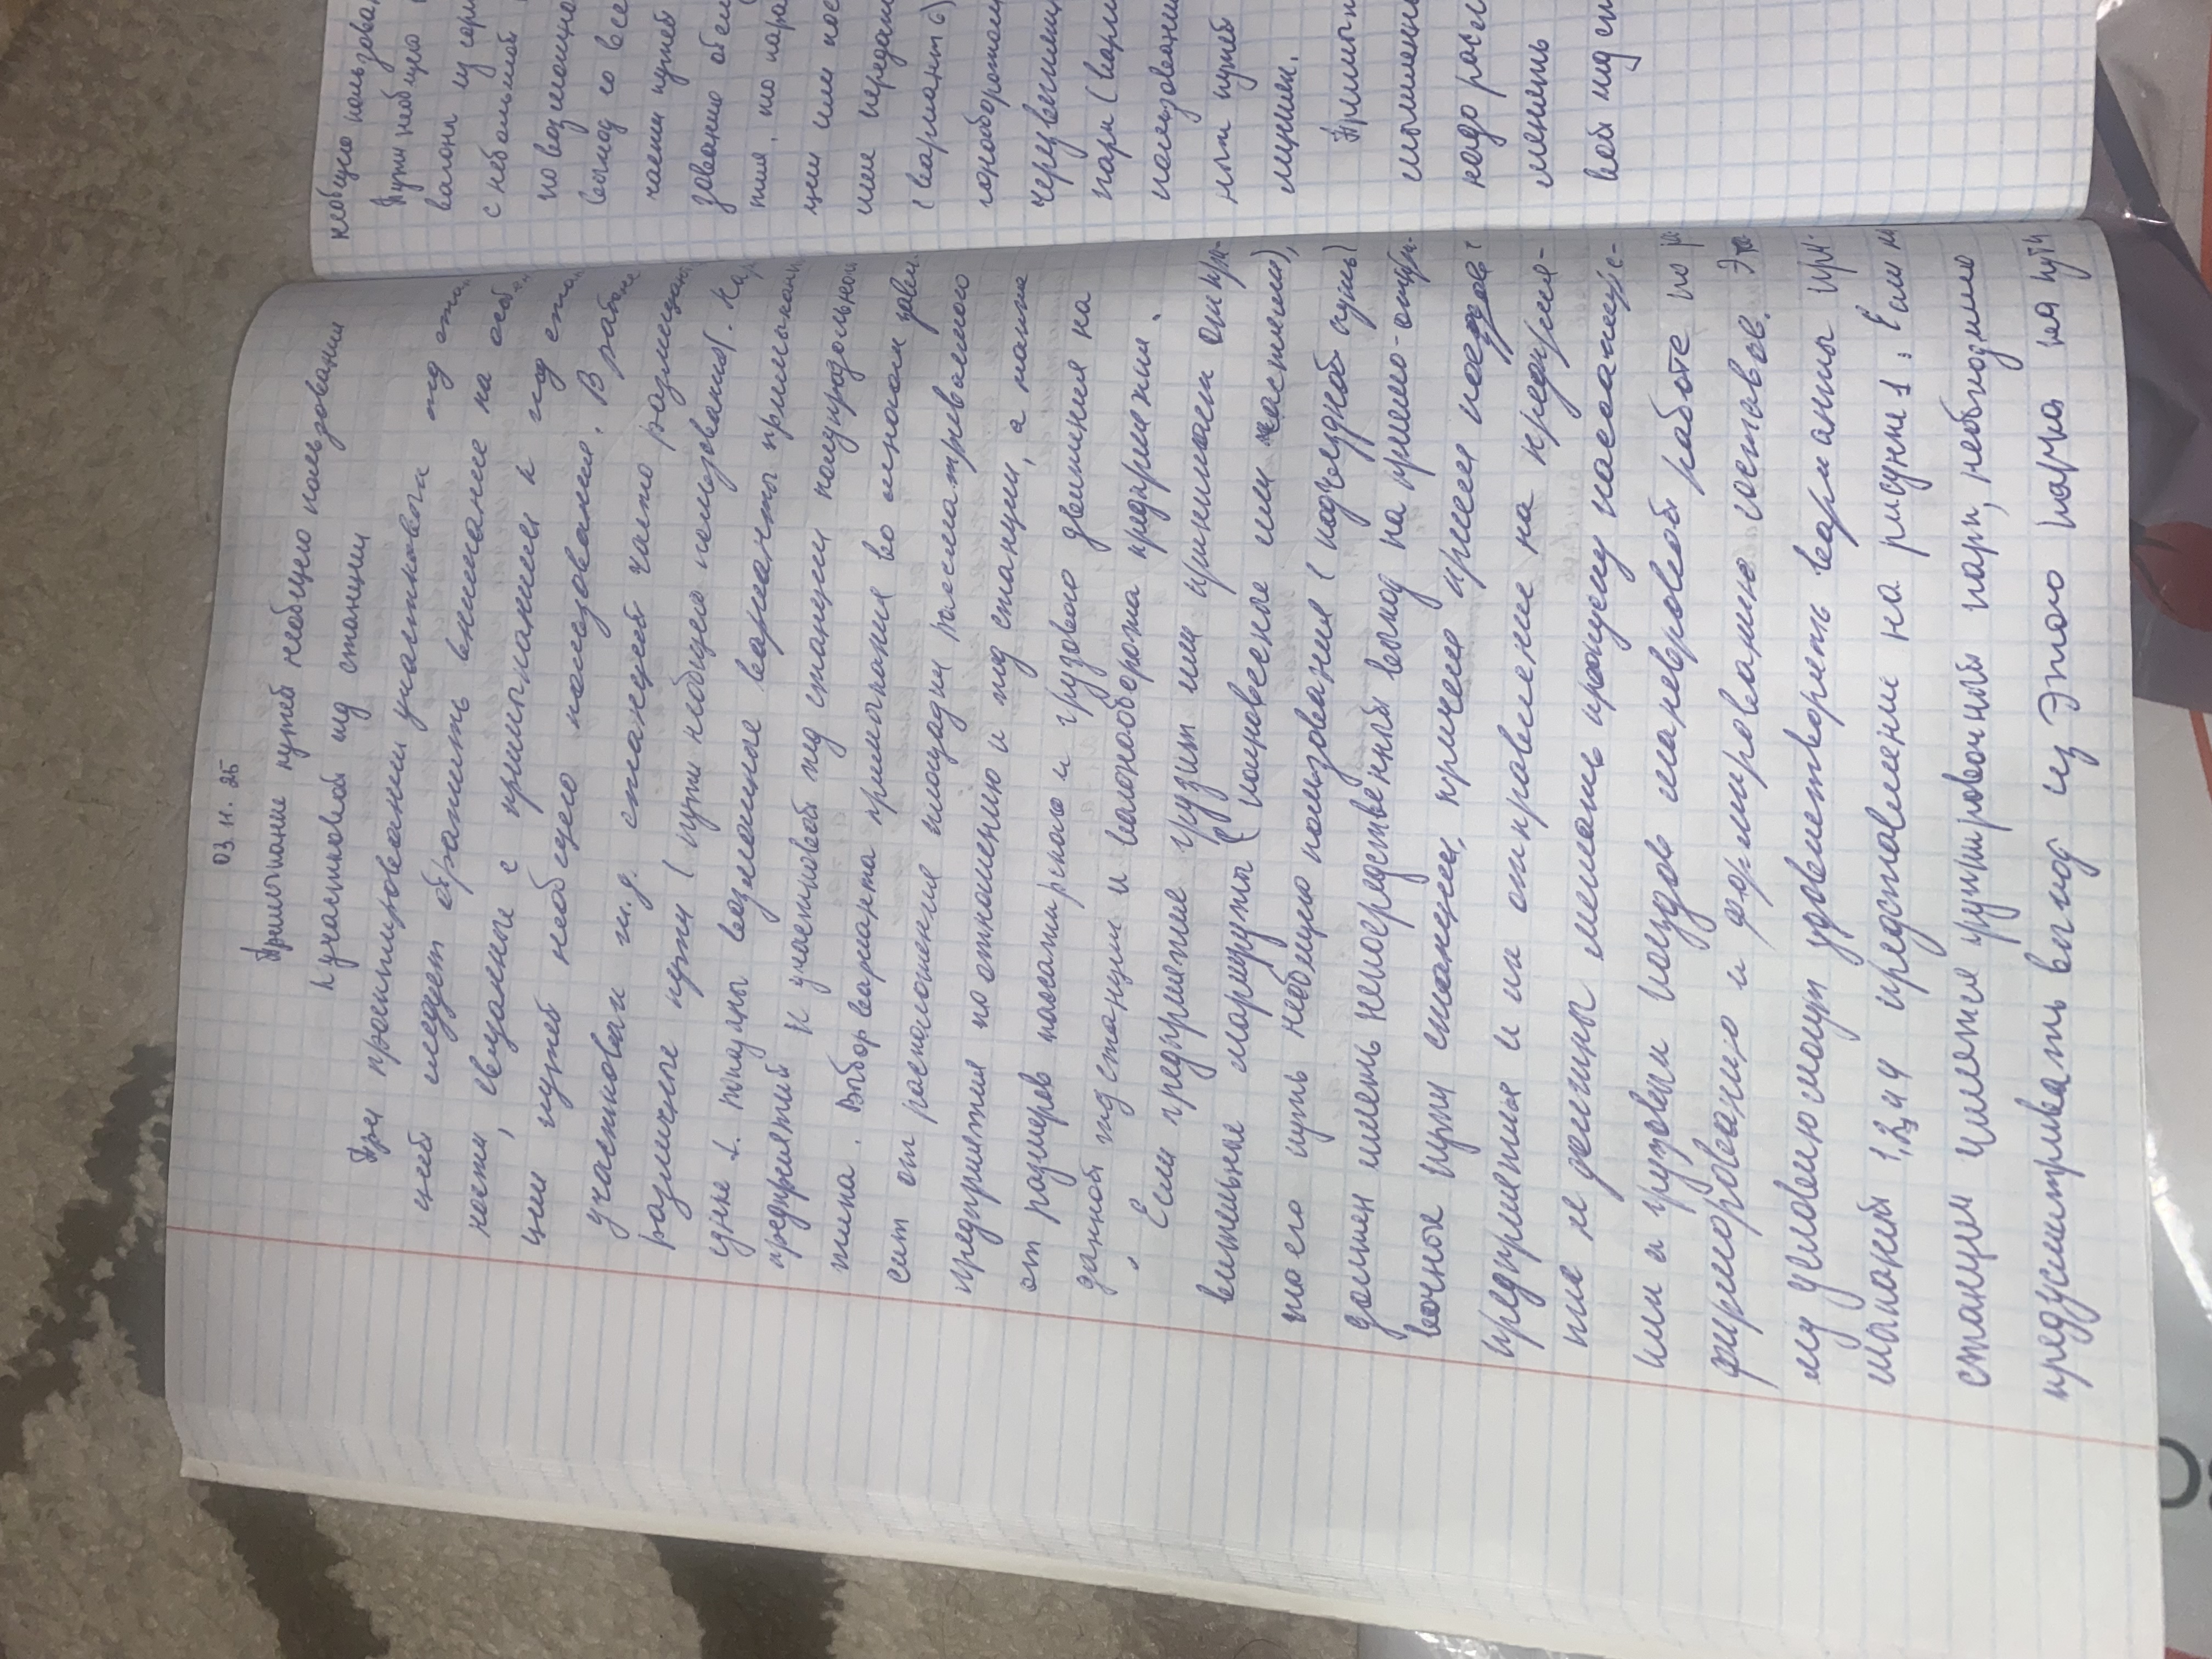 03.11.25
Примыкание путей необщего пользования
к участковой жд станции
При проектировании участковой жд стан
ций следует обратить внимание на особен
ности, связанные с примыканием к жд стан
ции путей необщего пользования. В районе
участковых ж.д. станцией часто размещают
различные пути (пути необщего пользования). На ри
сунке 1. показаны возможные варианты примыкания
предприятий к участковой жд станции полупродольного
типа. Выбор варианта примыкания во многом зави
сит от расположения площадки рассматриваемого
предприятия по отношению и жд станции, а также
от размеров пассажирского и грузового движения на
данной жд станции и вагонооборота предприятия.
Если предприятие грузит или принимает отпра-
вительные маршруты (полновесные или частями),
то его путь необщего пользования (подъездной путь)
должен иметь непосредственный выход на приемо-отпра-
вочные пути станции, причем прием поездов с
предприятия и их отправление на предприя-
тие не должны мешать прочему пассажирс-
ким и грузовым поездов маневровой работе по рас
формированию и формированию составов. Это
му условию могут удовлетворить варианты при
мыканий 1,2,3 и 4 представлены на рисунке 1. Если на
станции имеется группировочный парк, необходимо
предусматривать выход из этого парка на пути
необщего пользован
Пути необщего
вагоны из сорт
с небольшой
по возможно
выход со все
чаем путей
зованию обслу
тия, то пара
ции или пос
ме передаю
(вариант 6)
гонооборотом
через вытяжн
парк (вари
пользования
ным путей
лучшем.
Примык
мышленн
надо распол
менять
вой жд ст